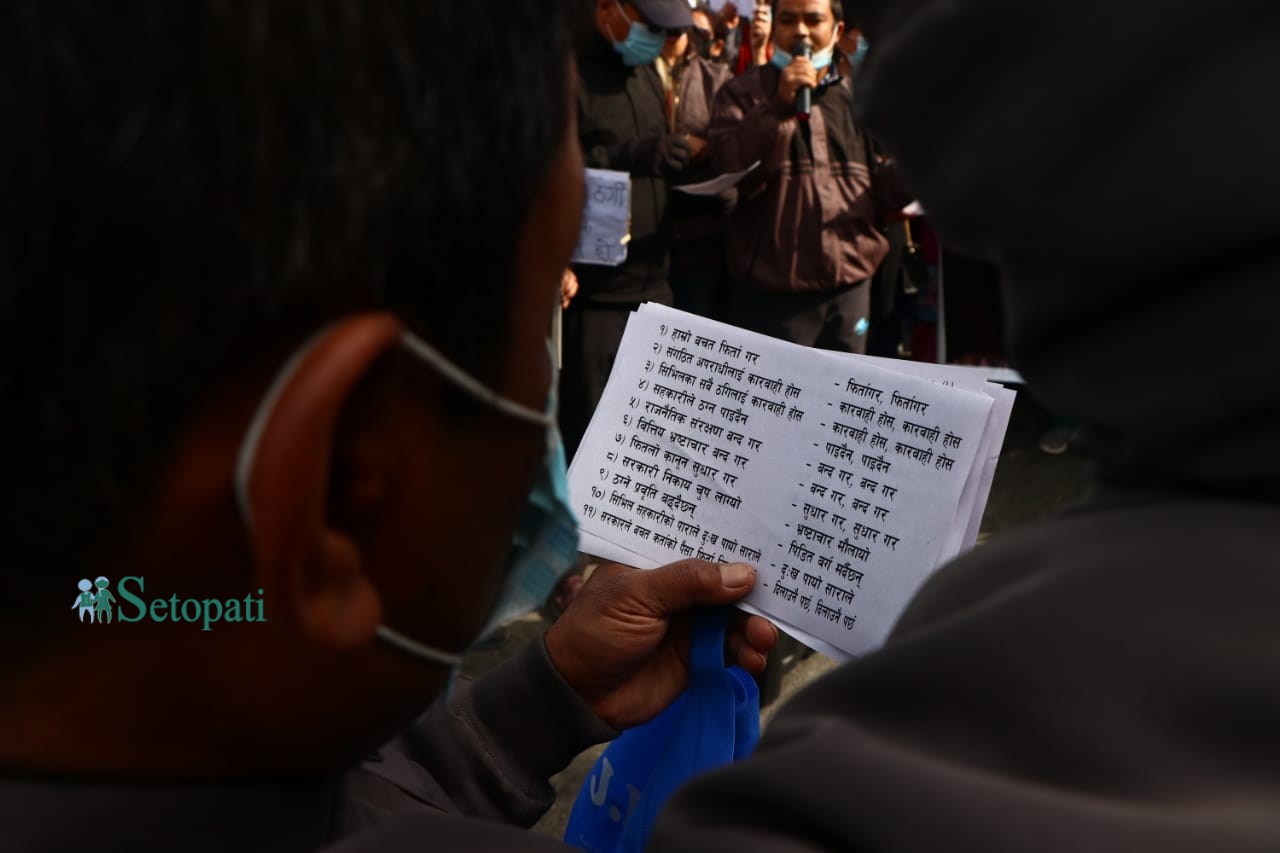 ठगी
१) हाम्रो बचत फिर्ता गर - फिर्तागर, फिर्तागर
२) संगठित अपराधीलाई कारवाही होस - कारवाही होस, कारवाही होस
३) सिभिलका सबै ठगिलाई कारवाही होस - कारवाही होस, कारवाही होस
४) सहकारीले ठग्न पाइदैन - पाइदैन, पाइदैन
५) राजनैतिक संरक्षण बन्द गर - बन्द गर, बन्द गर
६) वित्तिय भ्रष्टाचार बन्द गर - बन्द गर, बन्द गर
७) फितलो कानून सुधार गर - सुधार गर, सुधार गर
८) सरकारी निकाय चुप लाग्यो - भ्रष्टाचार मौलायो
९) ठग्ने प्रवृति बढ्दैछन् - पिडित वर्ग मर्दैछन्
१०) सिभिल सहकारीको पाराले दुःख पायो साराले - दुःख पायो साराले
११) सरकारले बचत कर्ताको पैसा फिर्ता - दिलाउनै पर्छ, दिलाउनै पर्छ
Setopati